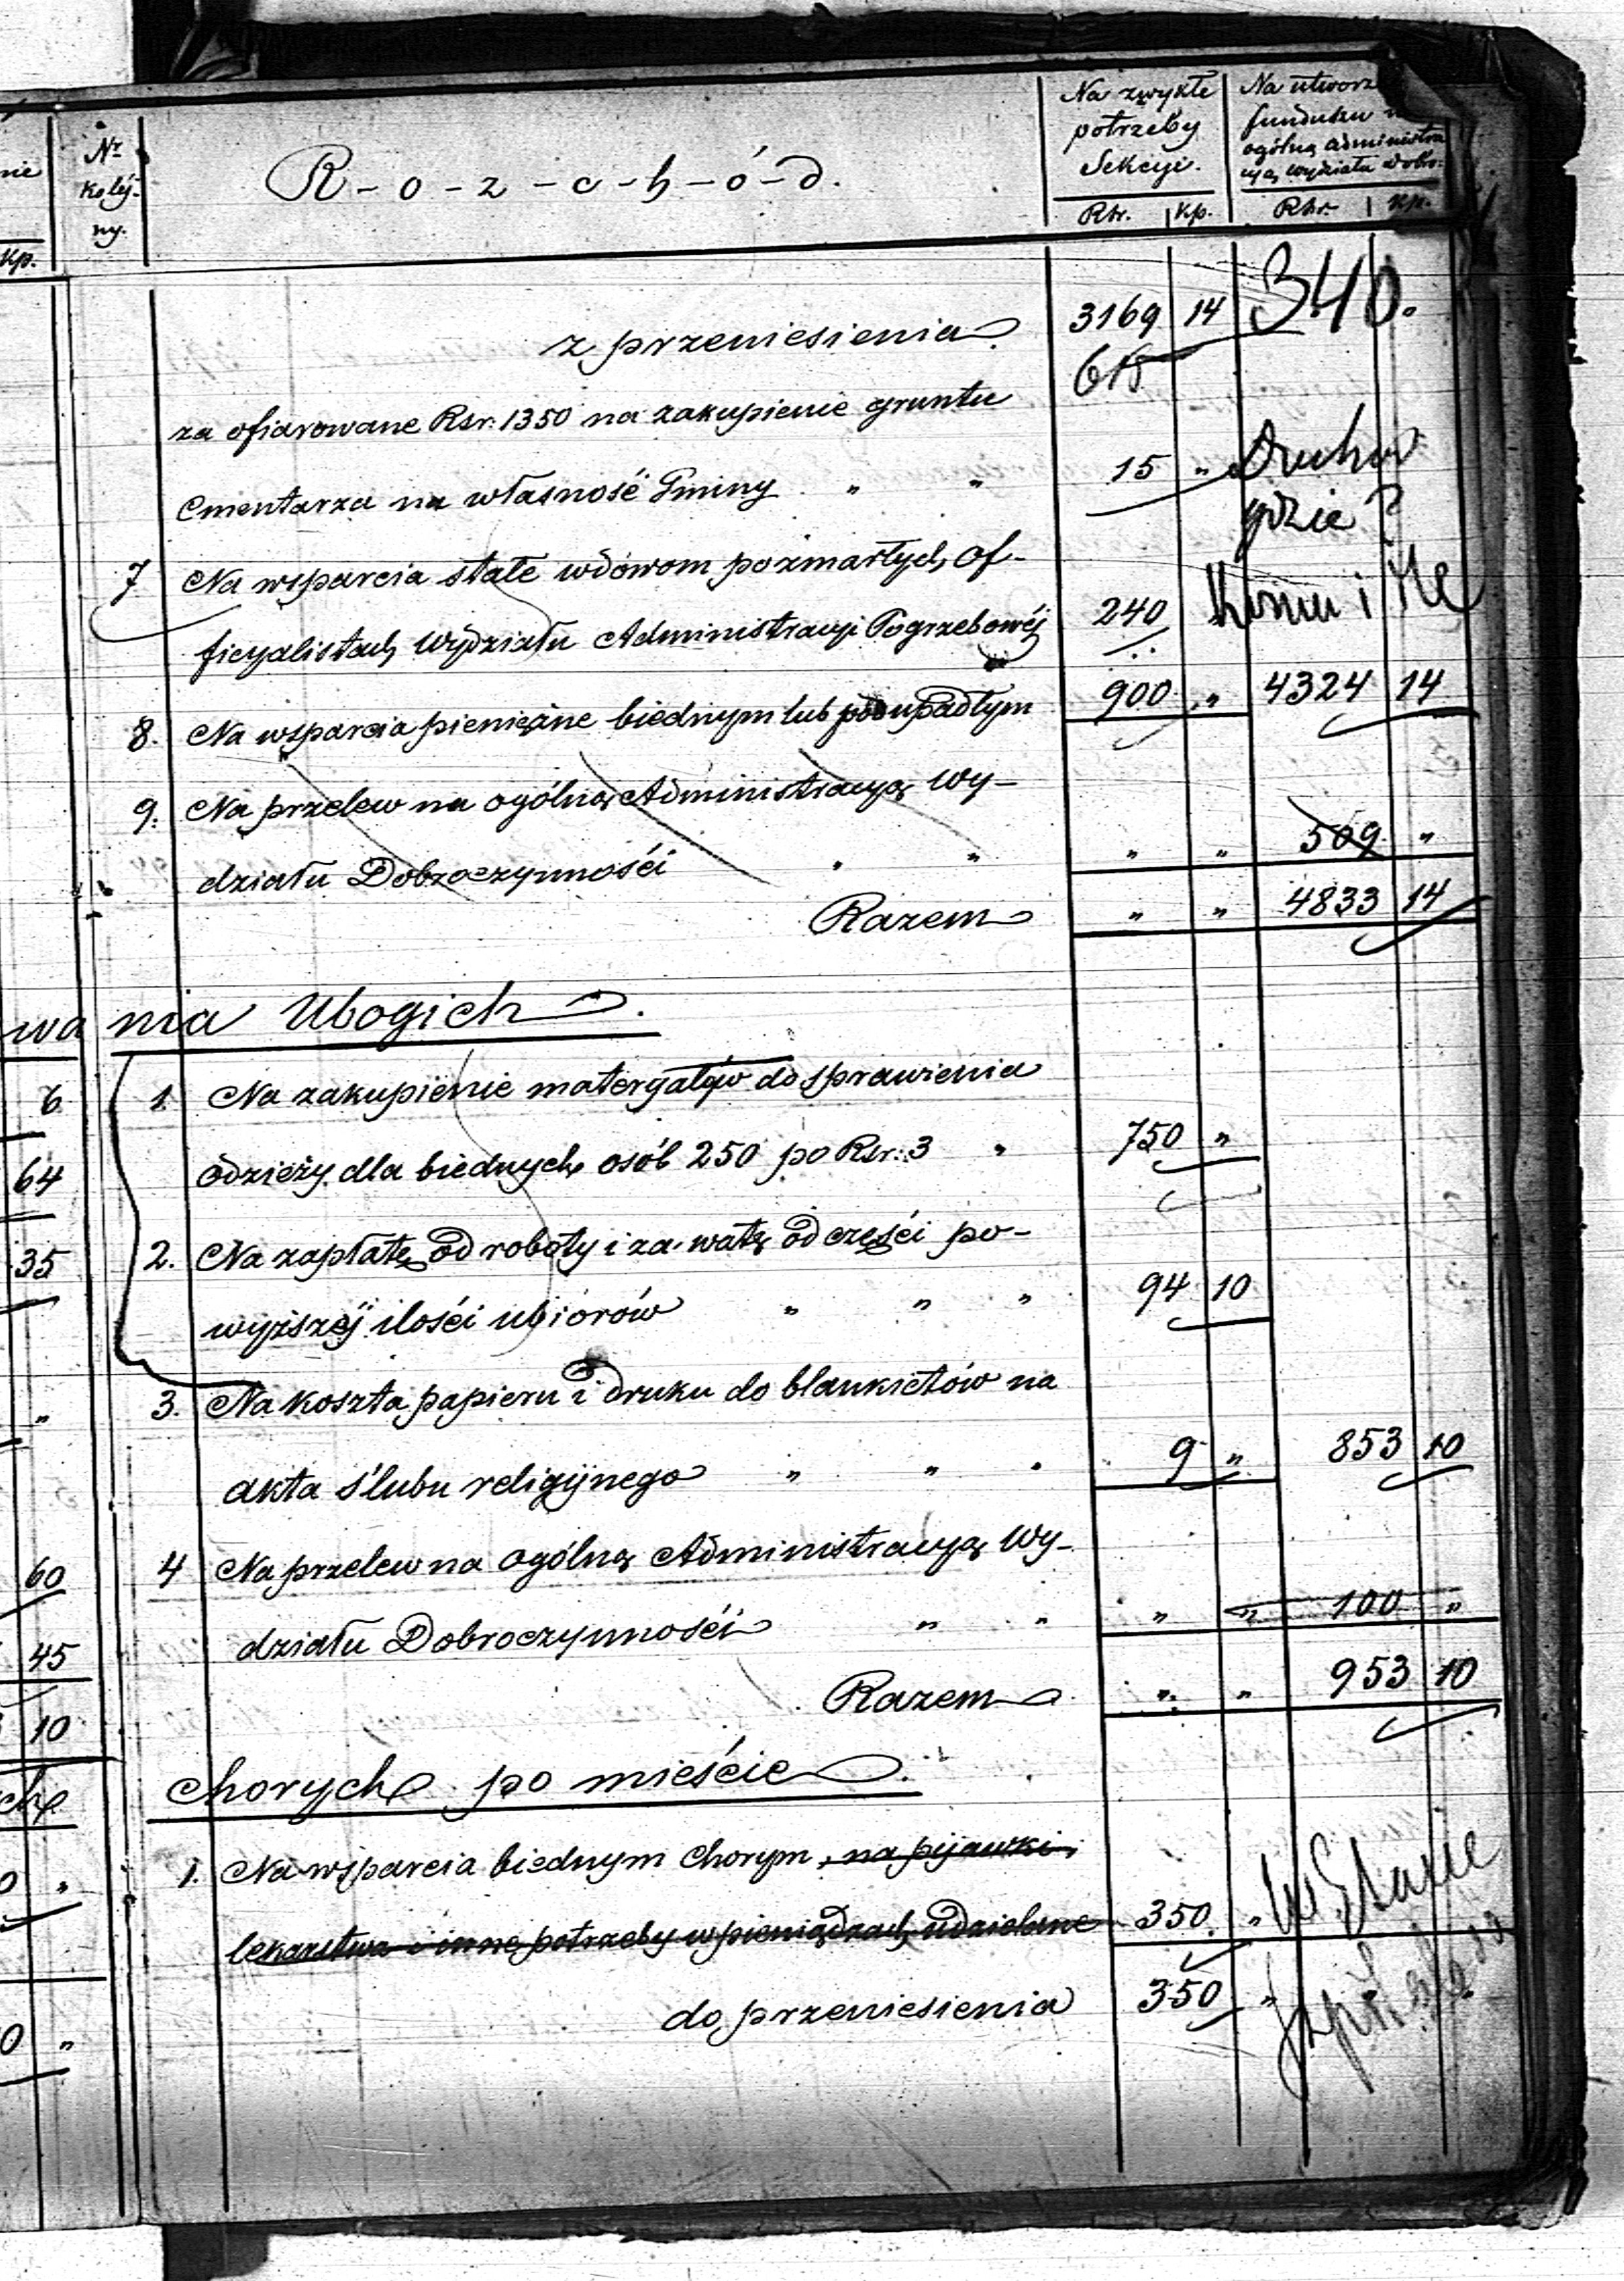 Nr kolej- ny.
R-o-z-c-h-ó-d.
Na zwykłe potrzeby Sekcyi.
Rsr. Kp.
Na utworz
funduszu
ogólną administra
cyą wydziału Dobro:
Rsr. Kp.
nie
Kp.
z przeniesienia 3169 14 340.
615
za ofiarowane Rsr. 1350 na zakupienie gruntu
Cmentarza na własność Gminy " " 15 "
gdzie?
7 Na wsparcia stałe wdowom po zmarłych of-
ficyalistach Wydziału Administracyi Pogrzebowéj 240
Komu i ile
8. Na wsparcia pieniężne biednym lub podupadłym 900 " 4324 14
9. Na przelew na ogólną Administracyą Wy-
działu Dobroczynności " " " " 509 "
Razem " " 4833 14
wa nia Ubogich.
6 1. Na zakupienie materyałów do sprawienia
64 odzieży dla biednych osób 250 po Rsr: 3 " 750 "
35 2. Na zapłatę od roboty i za watę od części po-
wyższéj ilości ubiorów " " " 94 10
" 3. Na koszta papieru i druku do blankietów na
akta ślubu religijnego " " " 9 " 853 10
60 4 Na przelew na ogólną Administracyą Wy-
45 działu Dobroczynności " " " " 100 "
10 Razem " " 953 10
ch chorych po mieście.
0 " 1. Na wsparcia biednym chorym, na pijawki,
lekarstwa i inne potrzeby w pieniądzach udzielane 350 "
0 " do przeniesienia 350 "